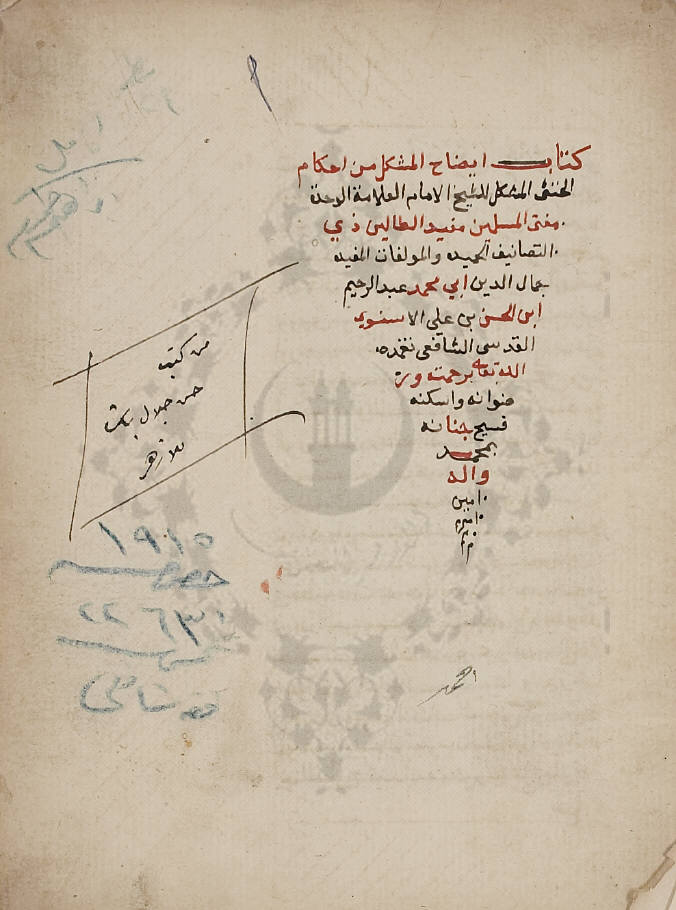 كتاب ايضاح المشكل من احكام
الخنثى المشكل للشيخ الامام العلامة الوحدة
مفتى المسلمين مفيد الطالبين ذي
التصانيف الحميده والمولفات المفيده
جمال الدين ابي محمد عبد الرحيم
ابن الحسن بن علي الاسنوي
القدسى الشافعى تغمده
الله تعالى برحمته ور
ضوانه واسكنه
فسيح جنانه
بمحمد
واله
امين
امين
من كتب
حسن جلال باشا
للازهر
١٩١٥
خصوصيه
٢٢٦٣١
عموميه
فقه شافعى
احمد